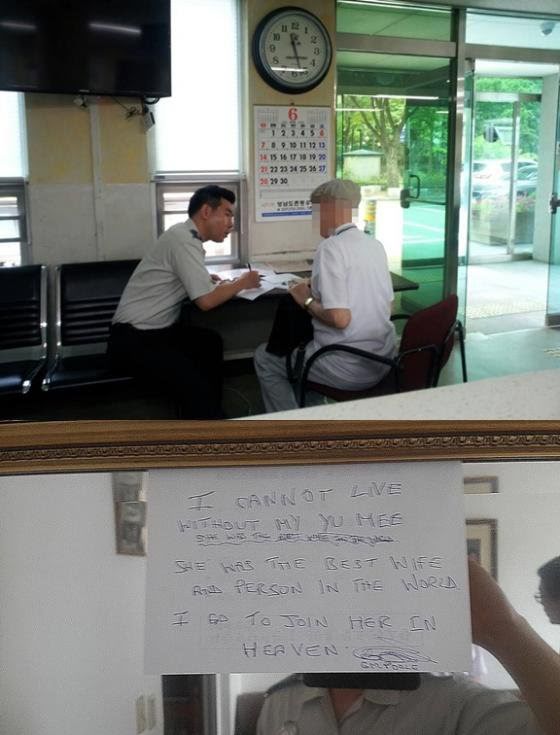 6
1 2 3 4 5 6
7 8 9 10 11 12 13
14 15 16 17 18 19 20
21 22 23 24 25 26 27
28 29 30
I CANNOT LIVE
WITHOUT MY YU MEE
SHE WAS THE BEST WIFE
AND PERSON IN THE WORLD.
I GO TO JOIN HER IN
HEAVEN.